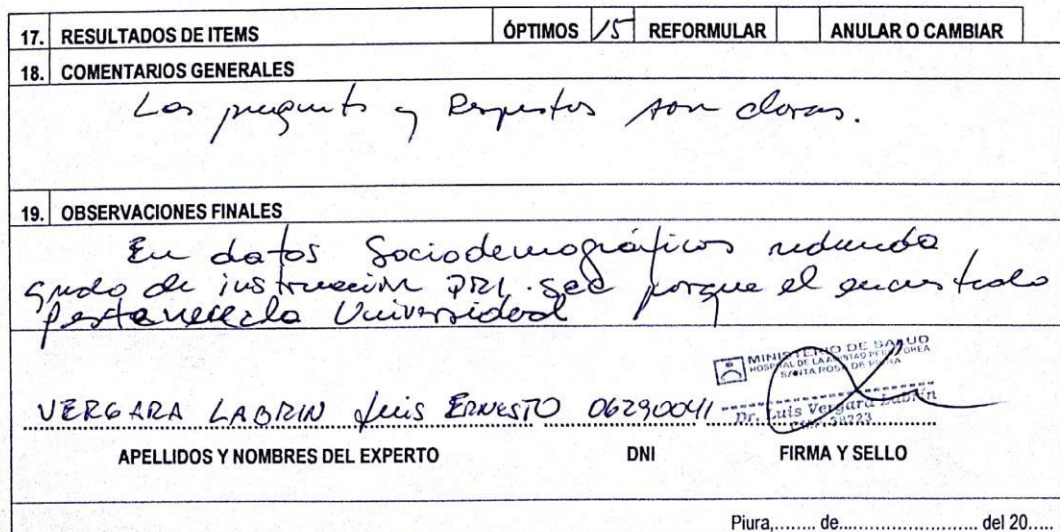 17. RESULTADOS DE ITEMS ÓPTIMOS 15 REFORMULAR ANULAR O CAMBIAR
18. COMENTARIOS GENERALES
Las pregunts y Respestas son claras.
19. OBSERVACIONES FINALES
En datos Sociodemográficos redunda
grado de instrucción PRI. sec porque el encuestado
a la Universidad
MINISTERIO DE SALUD
HOSPITAL DE LA AMISTAD PERU COREA
SANTA ROSA DE PIURA
VERGARA LABRIN Luis ERNESTO 06290041 Dr. Luis Vergara Labrin
APELLIDOS Y NOMBRES DEL EXPERTO DNI FIRMA Y SELLO
Piura,........ de............................ del 20.....